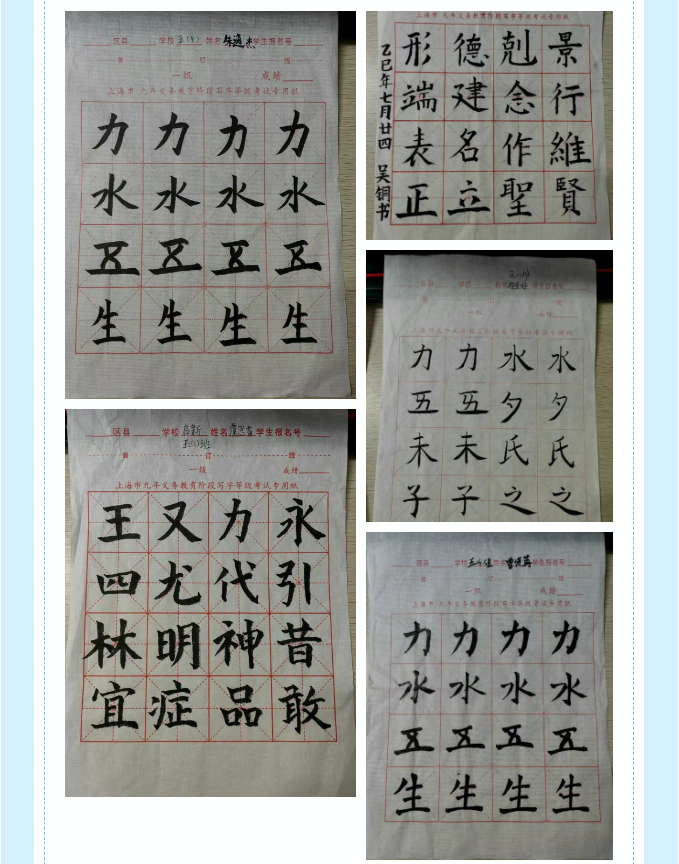 区县 学校 姓名 朱逸杰 学生报名号
装 订 线
一级 成绩
上海市 九年义务教育阶段写字等级考试专用纸
力 力 力 力
水 水 水 水
五 五 五 五
生 生 生 生
上海市 九年义务教育阶段写字等级考试专用纸
形 德 剋 景
端 建 念 行
表 名 作 維
正 立 聖 賢
乙巳年七月廿四 吴铜书
区县 学校 姓名 学生报名号
装 订 线
一级 成绩
上海市九年义务教育阶段写字等级考试专用纸
力 力 水 水
五 五 夕 夕
未 未 氏 氏
子 子 之 之
区县 学校 启新 姓名 学生报名号
五(1)班
装 订 线
一级 成绩
上海市九年义务教育阶段写字等级考试专用纸
王 又 力 永
四 尤 代 引
林 明 神 昔
宜 症 品 敢
区县 学校 姓名 学生报名号
装 订 线
一级 成绩
上海市 九年义务教育阶段写字等级考试专用纸
力 力 力 力
水 水 水 水
五 五 五 五
生 生 生 生